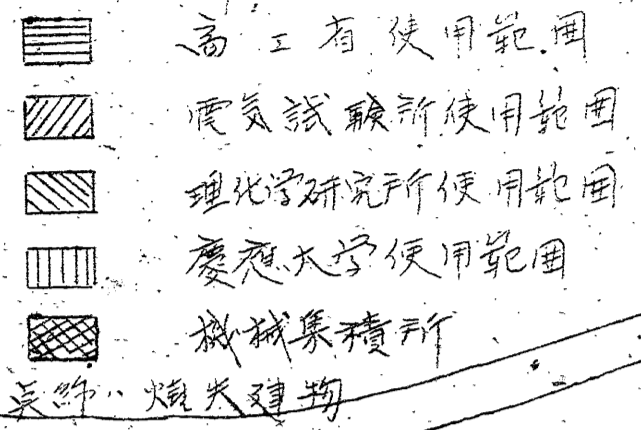 商工省使用範囲
電気試験所使用範囲
理化学研究所使用範囲
慶應大学使用範囲
機械集積所
点線ハ焼失建物